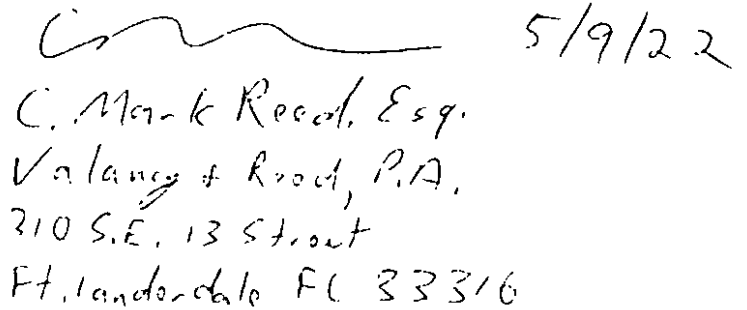 5/9/22
C. Mark Reed, Esq.
Valancy & Reed, P.A.
310 S.E. 13 Street
Ft. Lauderdale FL 33316